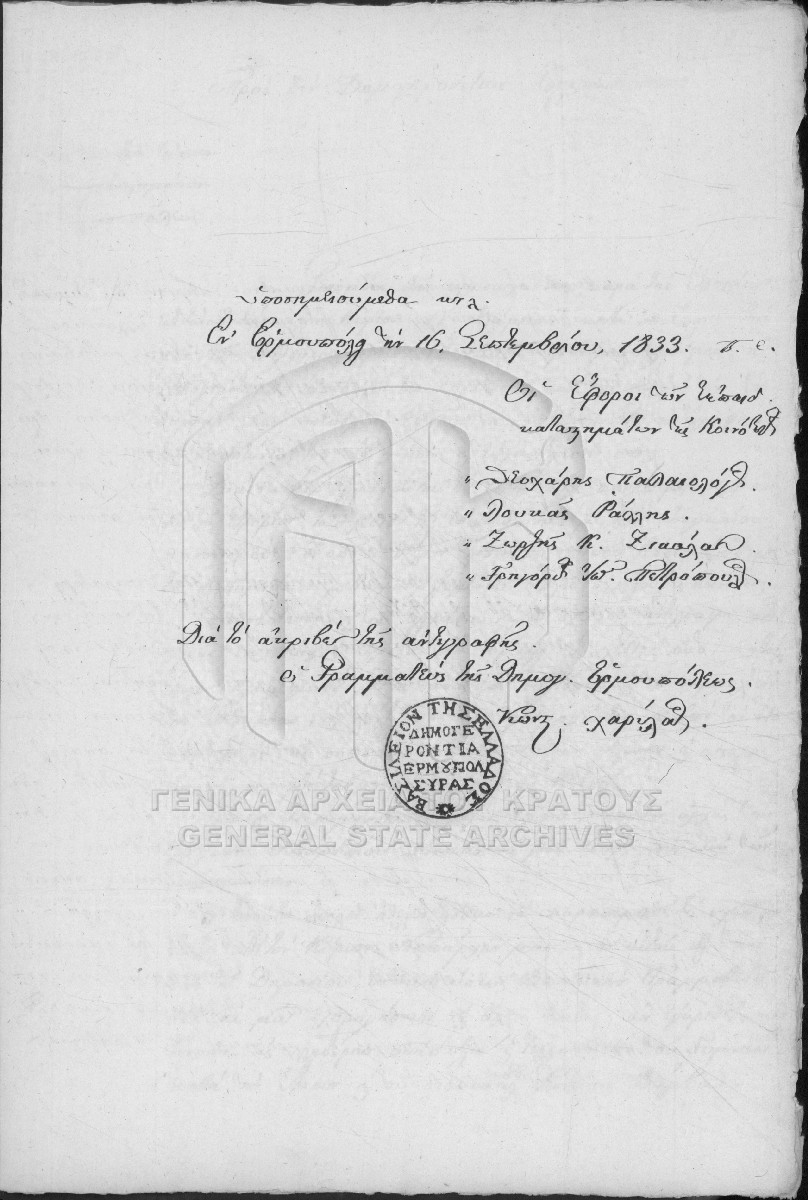 ὑποσημειούμεθα κτλ.
Ἐν Ἑρμουπόλει τὴν 16. Σεπτεμβρίου, 1833. π. ε.
Οἱ Ἔφοροι τῶν ἐκπαιδ.
καταστημάτων τῆς Κοινότητος
" Θεοχάρης Παλαιολόγου.
" Λουκᾶς Ῥάλλης.
" Ζωρζῆς Κ.
" Γρηγόριος Ἰω. Πετρόπουλος.
Διὰ τὸ ἀκριβὲς τῆς ἀντιγραφῆς.
Ὁ Γραμματεὺς τῆς Δημογ. Ἑρμουπόλεως.
Κωνστ. Χαρίλαος.
ΒΑΣΙΛΕΙΟΝ ΤΗΣ ΕΛΛΑΔΟΣ
ΔΗΜΟΓΕ
ΡΟΝΤΙΑ
ΕΡΜΟΥΠΟΛ
ΣΥΡΑΣ
ΓΕΝΙΚΑ ΑΡΧΕΙΑ ΤΟΥ ΚΡΑΤΟΥΣ
GENERAL STATE ARCHIVES